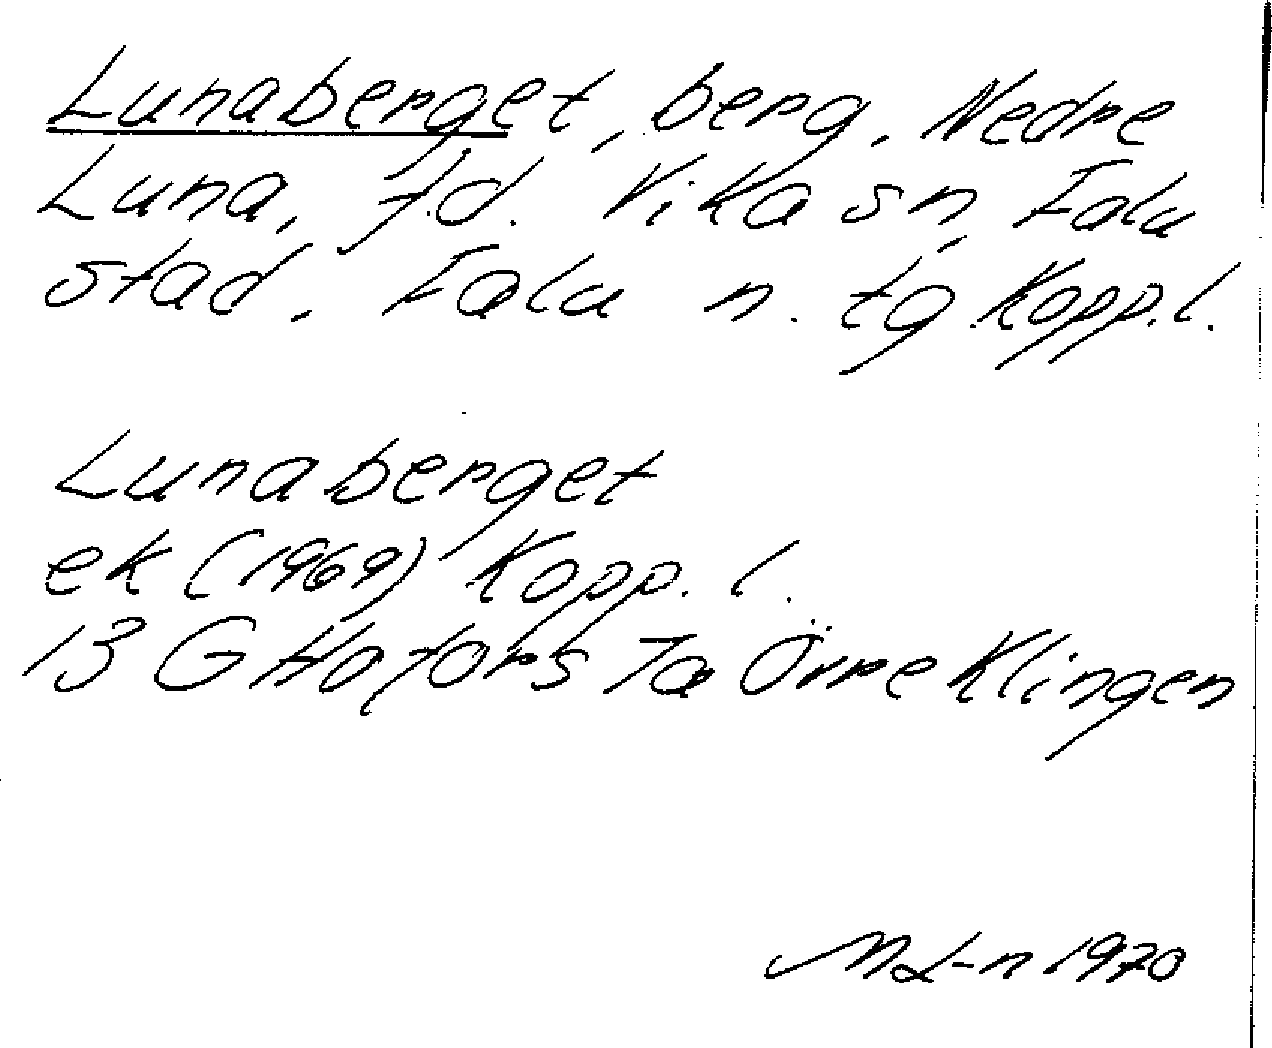 Lunaberget, berg, Nedre
Luna, f.d. Vika sn, Falu
stad. Falu n. tg Kopp.l.
Lunaberget
ek (1969) Kopp. l.
13 G Hofors 7a Övre Klingen
ML-n 1970